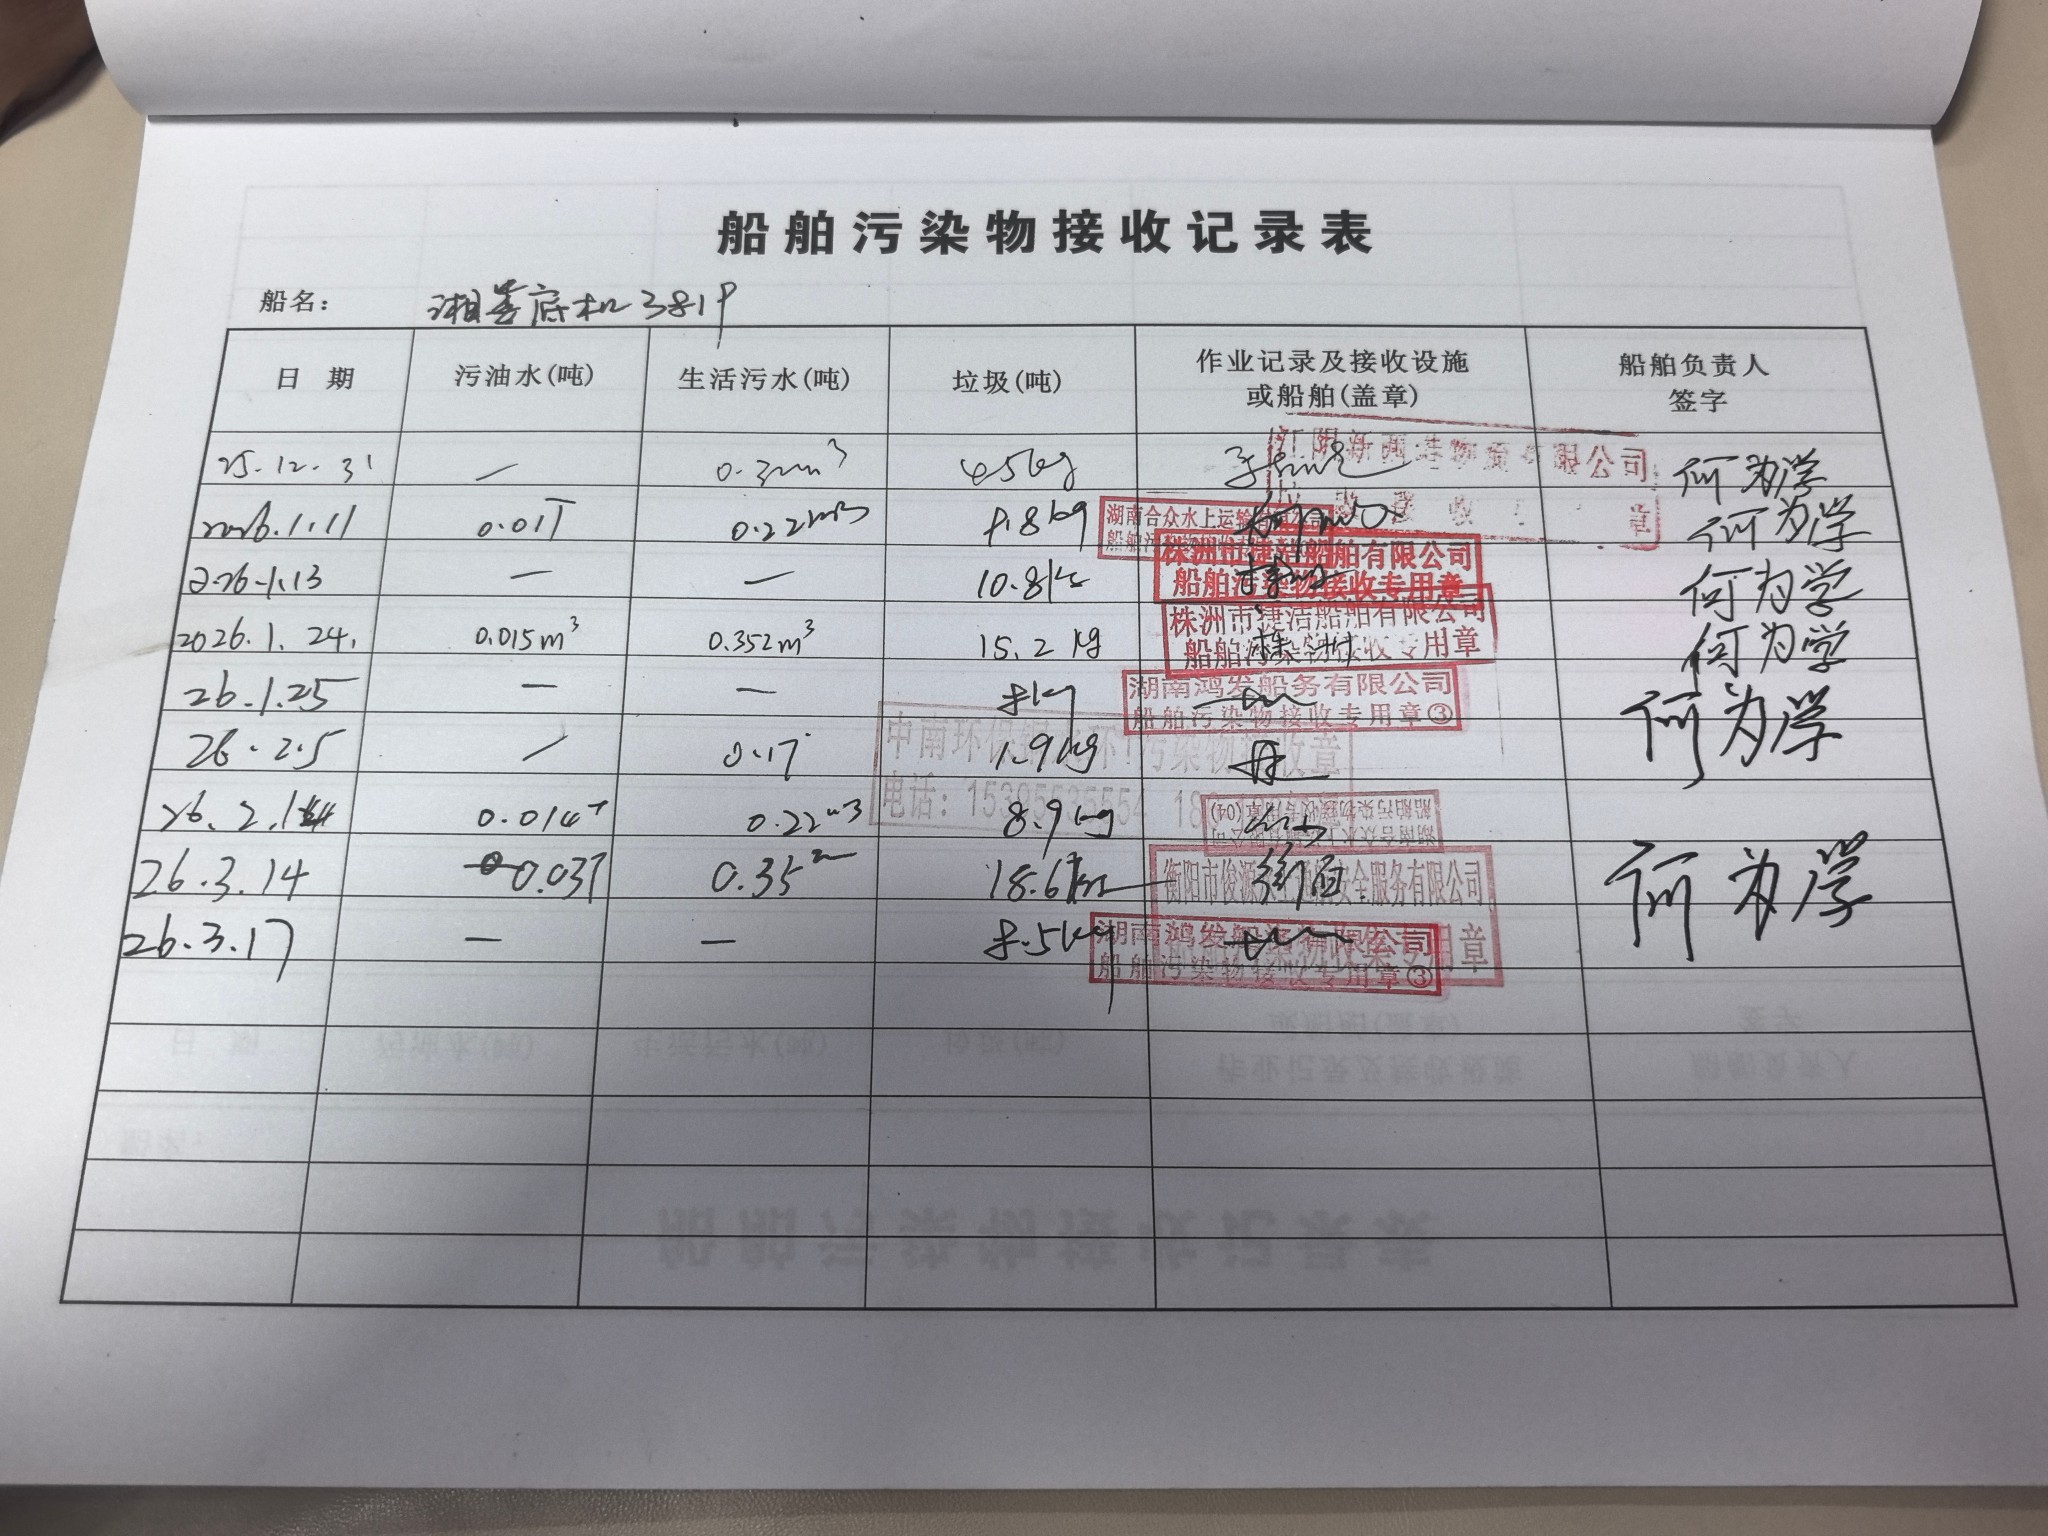 船舶污染物接收记录表
船名： 湘娄底机3819
日 期 污油水(吨) 生活污水(吨) 垃圾(吨) 作业记录及接收设施或船舶(盖章) 船舶负责人签字
25.12.31 — 45kg 何为学
江阴 有限公司
2026.1.11 0.01T 0.22m3 8.8kg 何为学
湖南合众水上运输
2026.1.13 — — 10.8kg 何为学
株洲市捷洁船舶有限公司
船舶污染物接收专用章
2026.1.24. 0.015m³ 0.352m³ 15.2kg 何为学
株洲市捷洁船舶有限公司
船舶污染物接收专用章
26.1.25 — — 8kg 何为学
湖南鸿发船务有限公司
船舶污染物接收专用章③
26.2.5 / 0.17 1.9kg
中南环保 污染物接收章
电话：
26.2.14 0.014T 0.22m3 8.9kg
船舶污染物接收专用章(04)
26.3.14 0.03T 0.35 18.6kg 何为学
衡阳市俊源 安全服务有限公司
26.3.17 — — 8.5kg
湖南鸿发船务有限公司
船舶污染物接收专用章③